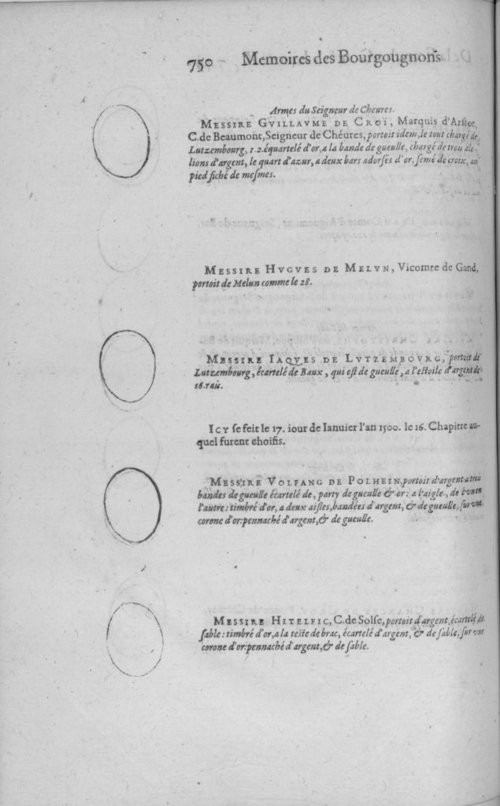 750 Memoires des Bourgougnons
Armes du Seigneur de Cheures.
MESSIRE GVILLAVME DE CROI, Marquis d'Arſtot,
C. de Beaumont, Seigneur de Chéures, portoit idem, le tout chargé de
Lutzembourg, 1. 2. équartelé d'or, a la bande de gueulle, chargé de trois
lions d'argent, le quart d'azur, a deux bars adorſés d'or, ſemé de croix, au
pied fiché de meſmes.
MESSIRE HVGVES DE MELVN, Vicomte de Gand,
portoit de Melun comme le 28.
MESSIRE IAQVES DE LVTZEMBOVRG, portoit de
Lutzembourg, écartelé de Baux, qui eſt de gueulle, a l'eſtoile d'argent de
16. rais.
ICY ſe feit le 17. iour de Ianuier l'an 1500. le 16. Chapitre au-
quel furent choiſis.
MESSIRE VOLFANG DE POLHEIN, portoit d'argent a trois
bandes de gueulle écartelé de, party de gueulle & or: a l'aigle, de l'un en
l'autre: timbré d'or, a deux aiſles, bandées d'argent, & de gueulle, ſur une
corone d'or: pennaché d'argent, & de gueulle.
MESSIRE HITELFIC, C. de Solſe, portoit d'argent, écartelé de
ſable: timbré d'or, a la teſte de brac, écartelé d'argent, & de ſable, ſur une
corone d'or: pennaché d'argent, & de ſable.